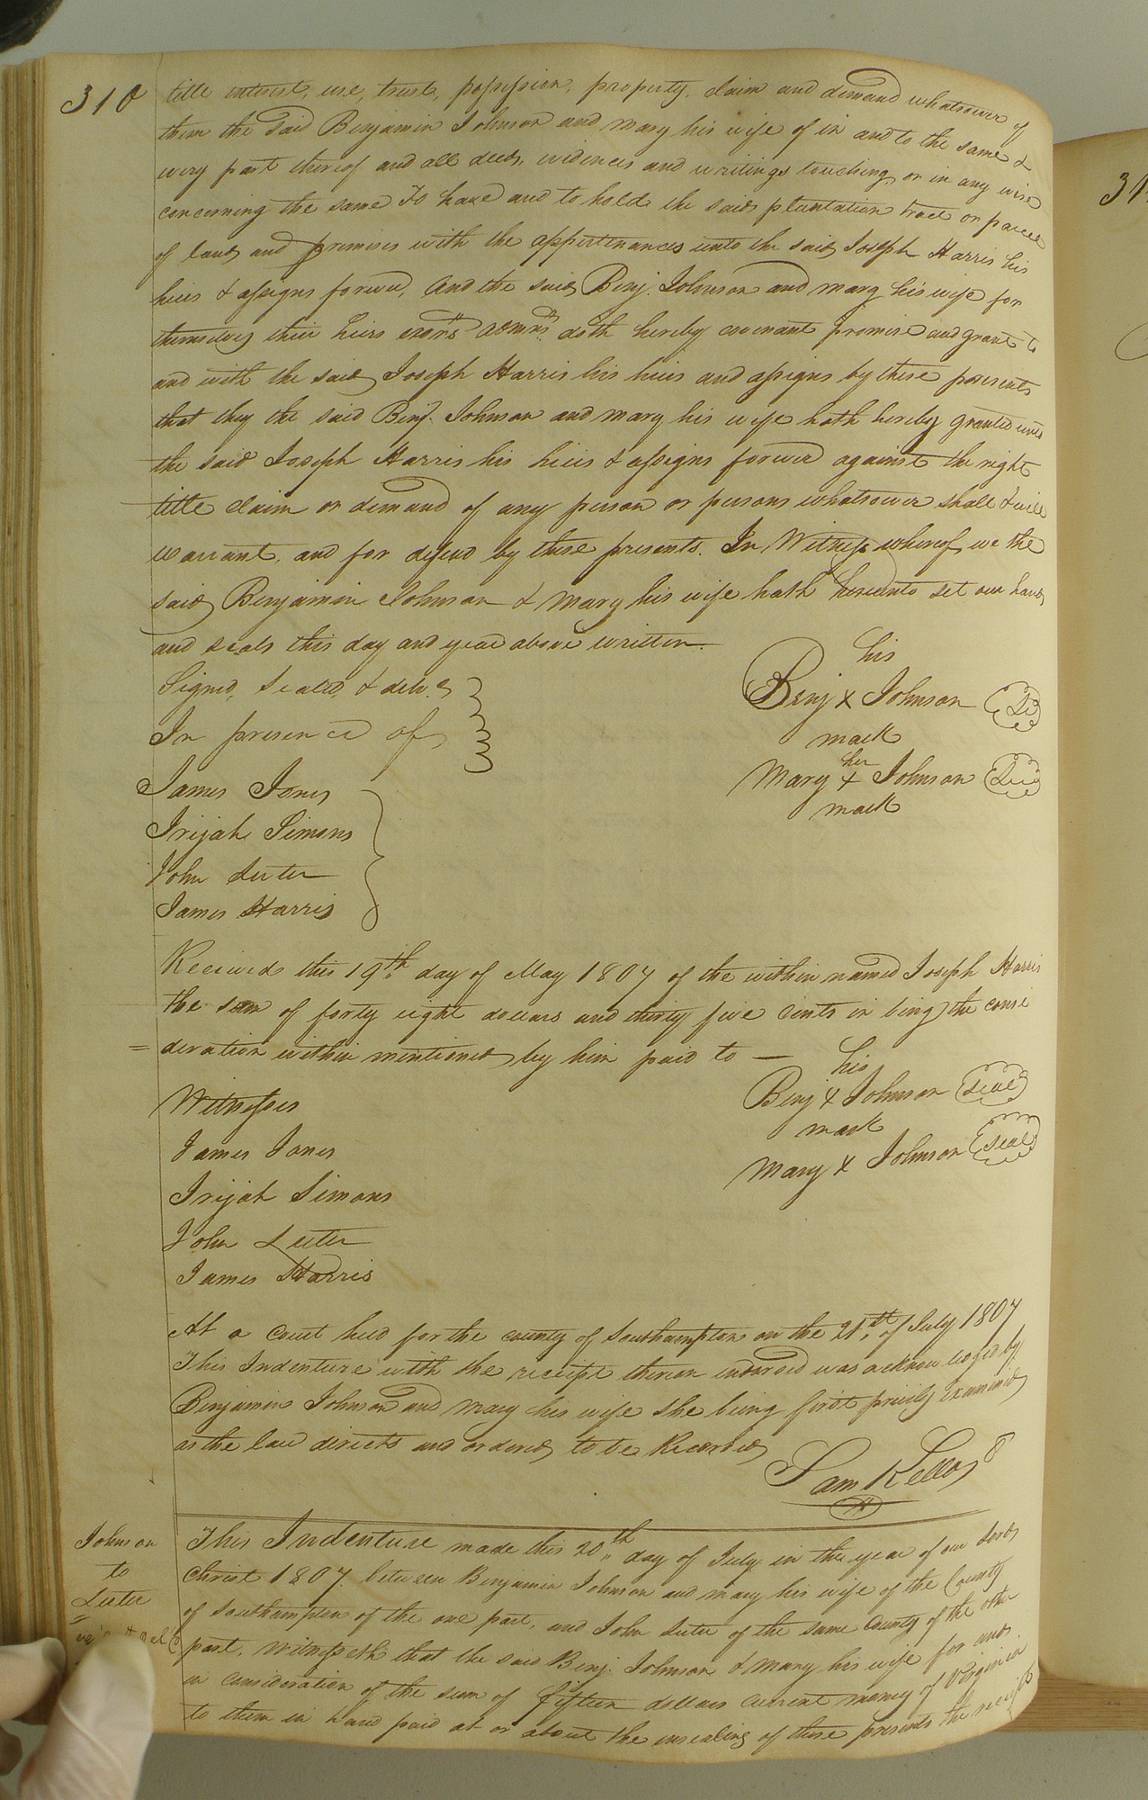 310
title interest, use, trust, possession, property, claim and demand whatsoever of
them the said Benjamin Johnson and Mary his wife of in and to the same &
every part thereof and all deeds, evidences and writings touching or in any wise
concerning the same To have and to hold the said plantation tract or parcel
of land and premises with the appertinances unto the said Joseph Harris his
heirs & assigns forever, And the said Benj. Johnson and Mary his wife for
themselves their heirs exors admrs doth hereby covenant promise and grant to
and with the said Joseph Harris his heirs and assigns by these presents
that they the said Benj. Johnson and Mary his wife hath hereby granted unto
the said Joseph Harris his heirs & assigns forever against the right
title claim or demand of any person or persons whatsoever shall & will
warrant, and for defend by these presents. In Witness whereof we the
said Benjamin Johnson & Mary his wife hath hereunto set our hands
and seals this day and year above written.
his
Signed, Sealed, & deld.
Benj X Johnson
In presence of
mark
her
James Jones
Mary X Johnson
mark
Irijah Simons
John Luter
James Harris
Received this 19th day of May 1807 of the within named Joseph Harris
the sum of forty eight dollars and thirty five cents in being the consi
= deration within mentioned by him paid to —
his
Witnesses
Benj X Johnson seal
mark
James Jones
Mary X Johnson seal
Irijah Simons
John Luter
James Harris
At a court held for the county of Southampton on the 21st of July 1807
This Indenture with the receipt thereon indorsed was acknowledged by
Benjamin Johnson and Mary his wife she being first privily examined
as the law directs and ordered to be Recorded
Sam Kello
Johnson
to
Luter
This Indenture made this 20th day of July in the year of our Lord
Christ 1807. between Benjamin Johnson and Mary his wife of the County
of Southampton of the one part, and John Luter of the same County of the other
part, Witnesseth that the said Benj. Johnson & Mary his wife for and
in consideration of the sum of fifteen dollars current money of Virginia
to them in hand paid at or about the ensealing of these presents the receipt